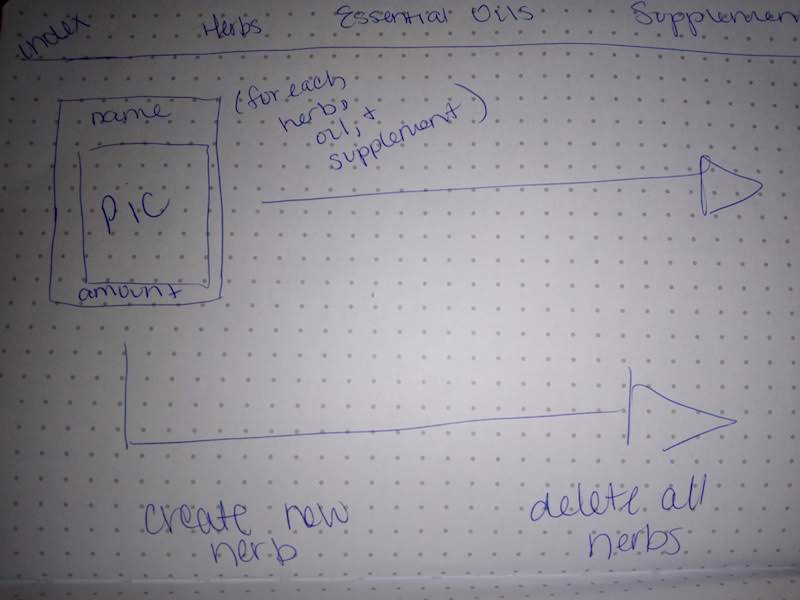 index Herbs Essential Oils Supplement
name
(for each
herb,
oil, +
supplement)
PIC
amount
create new
herb
delete all
herbs